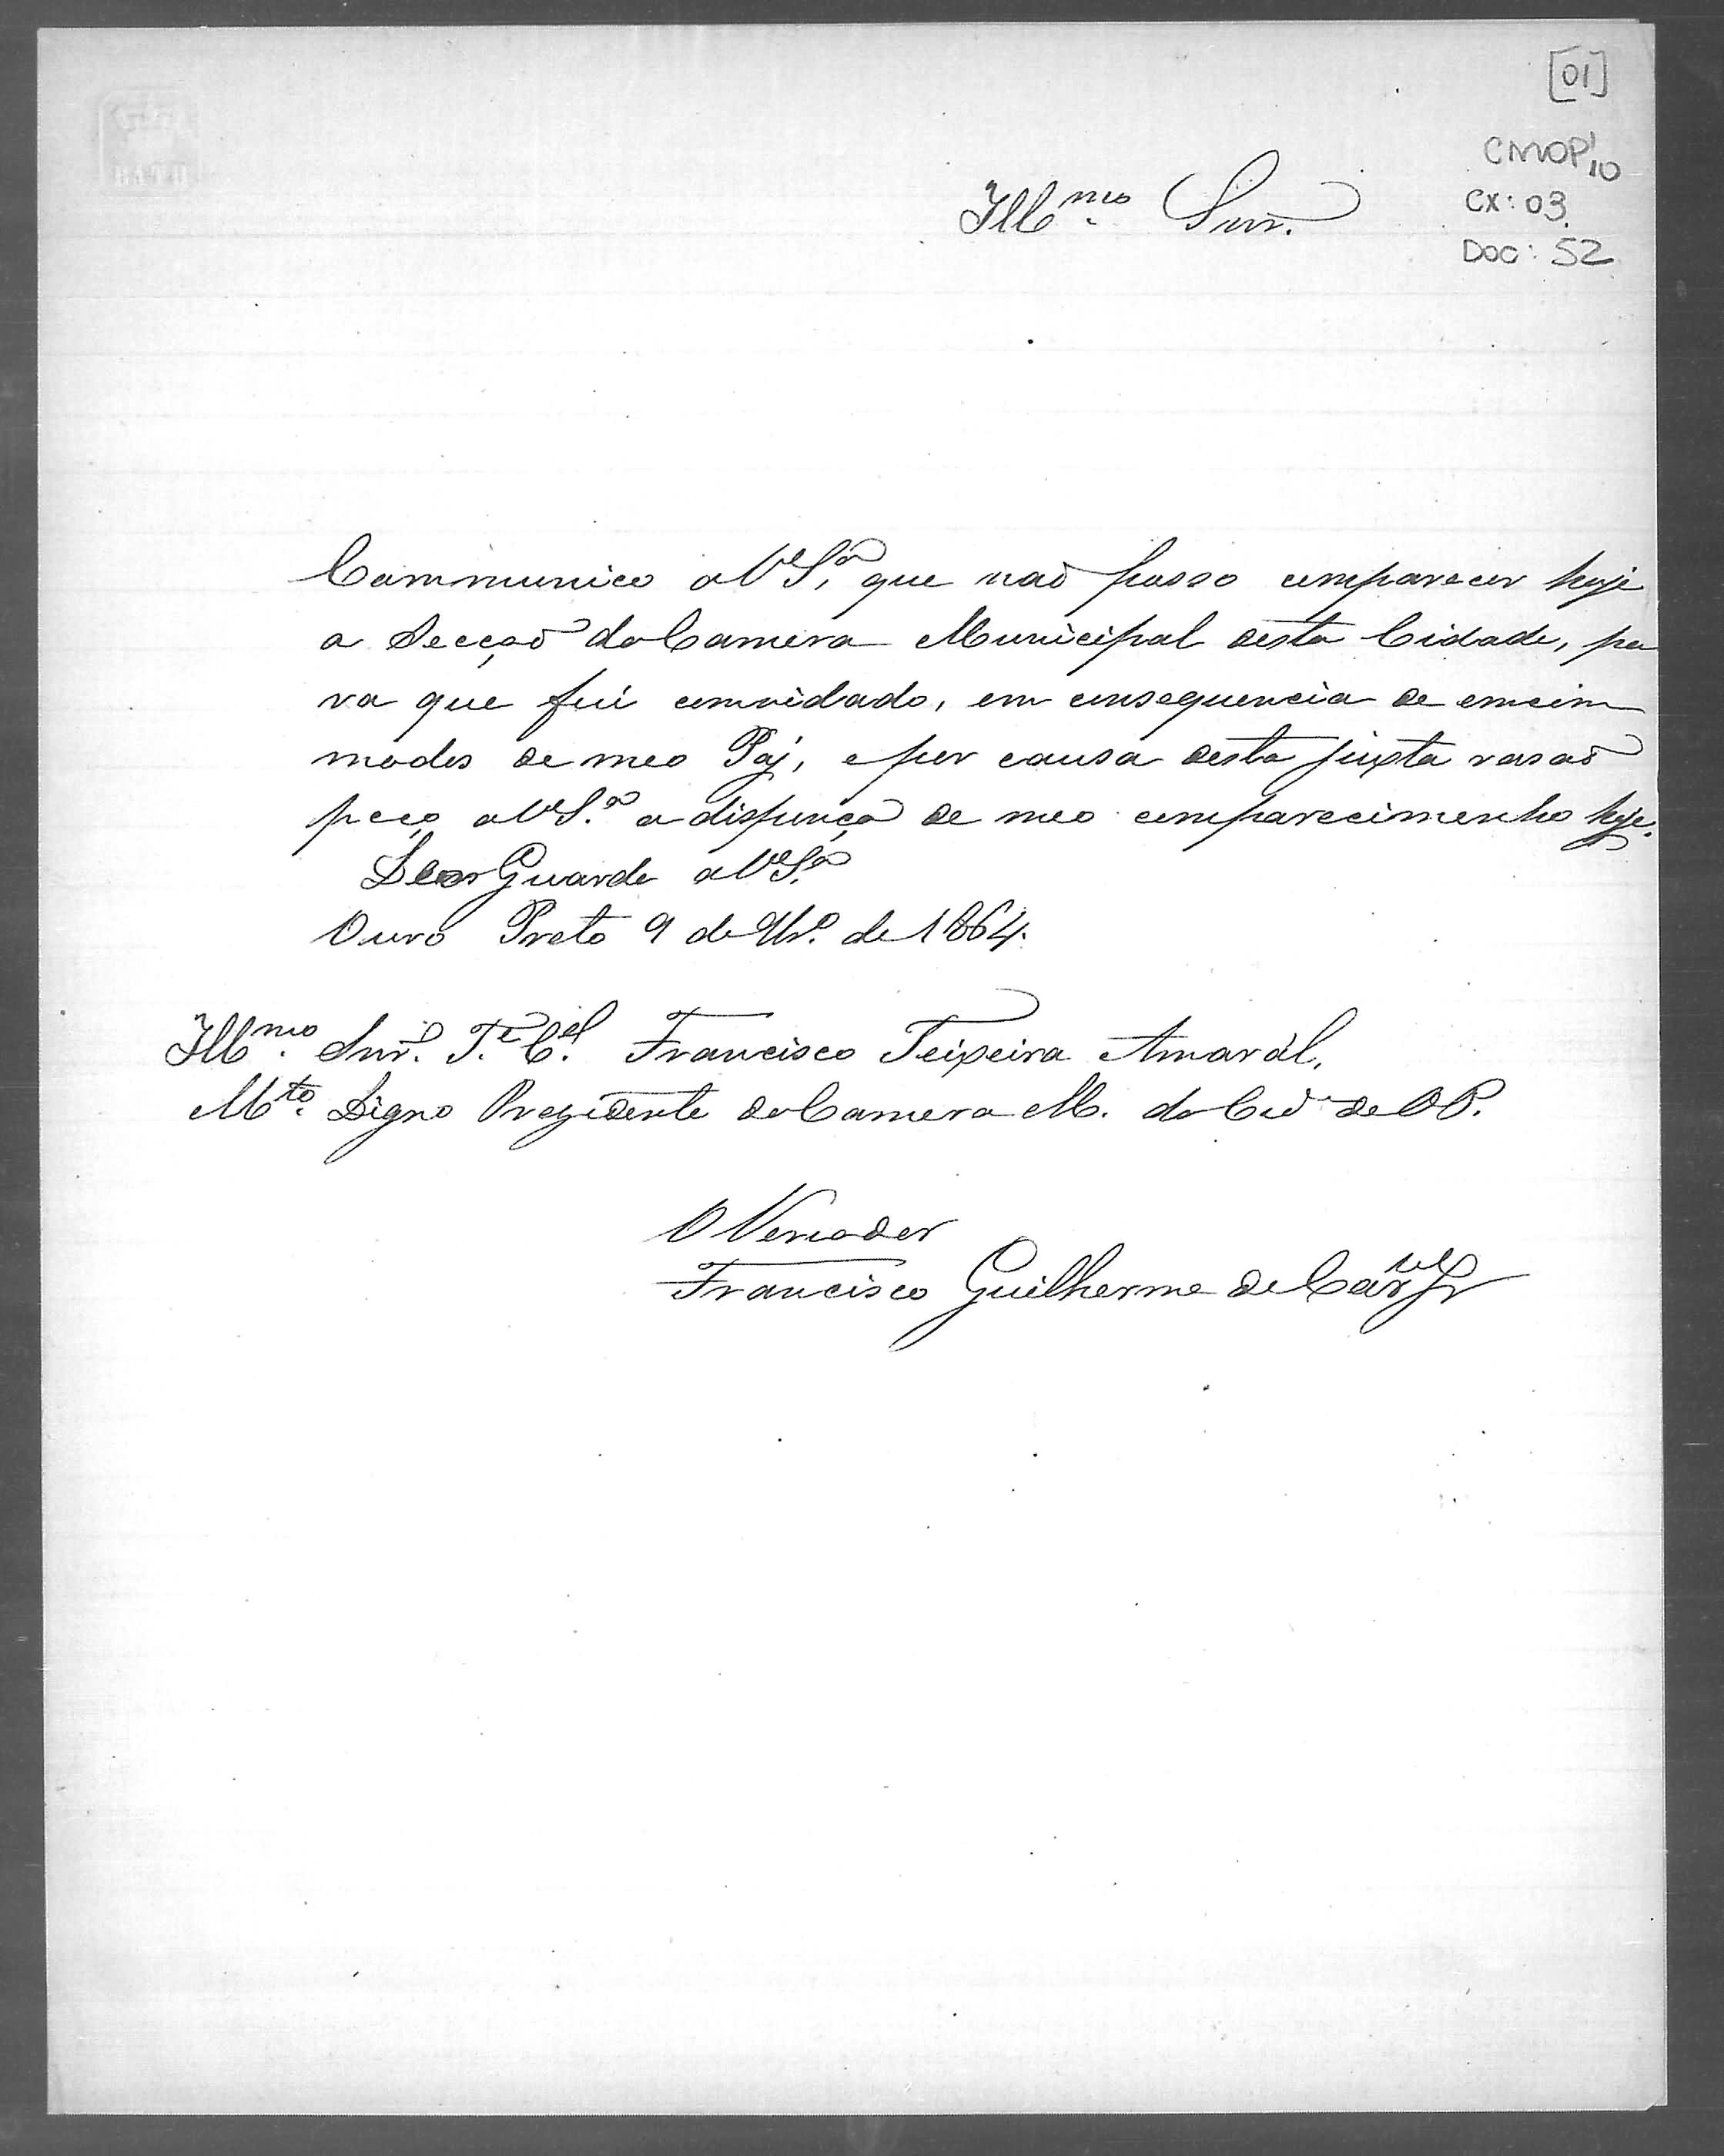 [01]
CMOP 1/10
CX: 03
DOC: 52
Illmo. Snr.
Communico a V.S.a que naõ posso comparecer hoje
a Secçaõ da Camera Municipal desta Cidade, pa
ra que fui comvidado, em consequencia de emcom
modos de meo Paj, e por causa desta justa rasaõ
peço a V.S.a a dispença de meo comparecimento hoje.
Deos Guarde a V.S.a
Ouro Preto 9 de de 1864.
Illmo. Snr. Te. Cel. Francisco Teixeira Amarál,
Mto. Digno Prezidente da Camera M. da Cide de OP.
O Veriador
Francisco Guilherme de